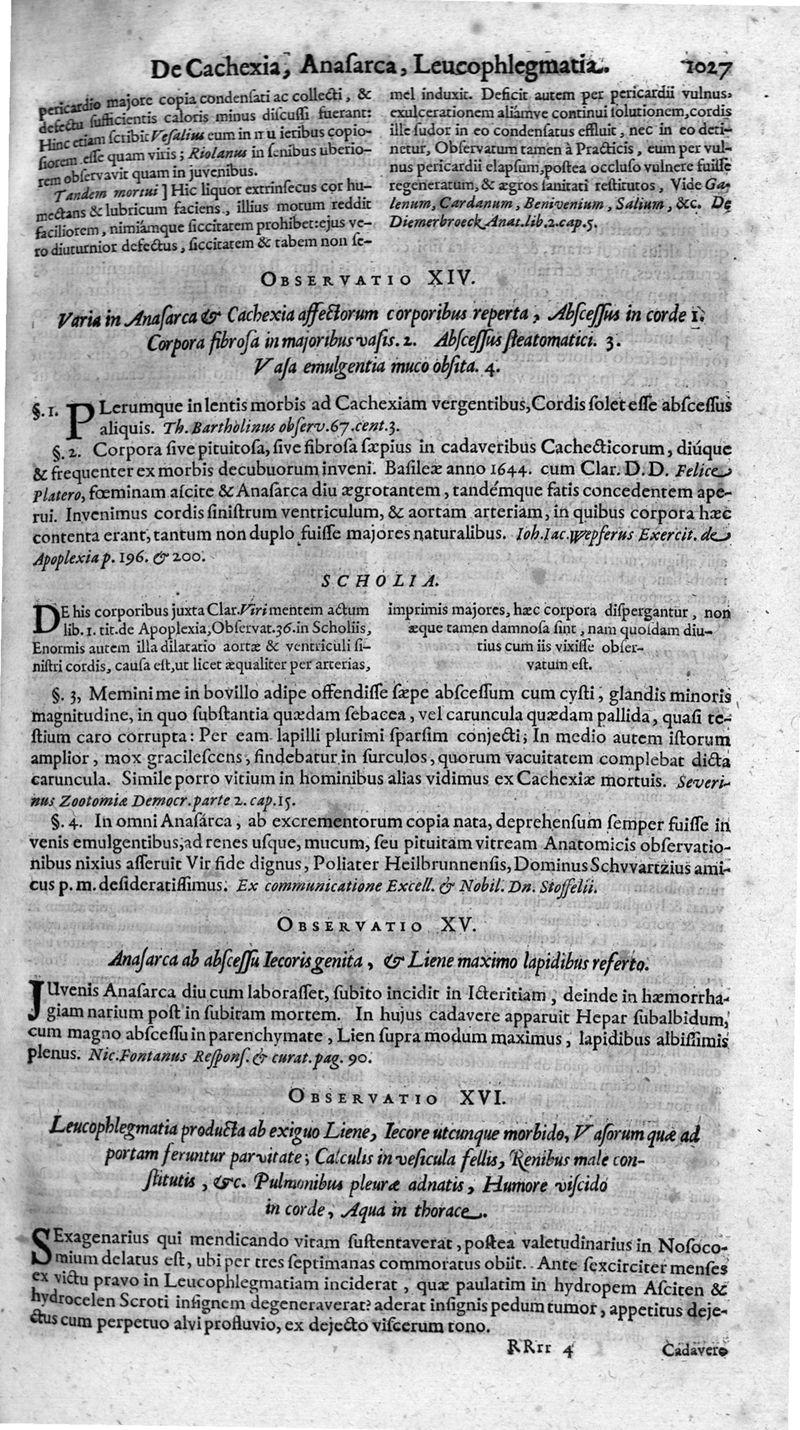 De Cachexia, Anaſarca, Leucophlegmatia. 1027
pericardio majore copia condenſati ac collecti, &
defectu ſufficientis caloris minus diſcuſſi fuerant:
Hinc etiam ſcribit Veſalius eum in mulieribus copio-
ſiorem eſſe quam viris; Riolanus in ſenibus uberio-
rem obſervavit quam in juvenibus.
Tandem mortui] Hic liquor extrinſecus cor hu-
mectans & lubricum faciens, illius motum reddit
faciliorem, nimiámque ſiccitatem prohibet: ejus ve-
ro diuturnior defectus, ſiccitatem & tabem non ſe-
mel induxit. Deficit autem per pericardii vulnus,
exulcerationem aliámve continui ſolutionem, cordis
ille ſudor in eo condenſatus effluit, nec in eo deti-
netur, Obſervatum tamen à Practicis, eum per vul-
nus pericardii elapſum, poſtea occluſo vulnere fuiſſe
regeneratum, & ægros ſanitati reſtitutos, Vide Ga-
lenum, Cardanum, Benivenium, Salium, &c. De
Diemerbroeck Anat. lib. 2. cap. 5.
OBSERVATIO XIV.
Varia in Anaſarca & Cachexia affectorum corporibus reperta, Abſceſſus in corde 1.
Corpora fibroſa in majoribus vaſis. 2. Abſceſſus ſteatomatici. 3.
Vaſa emulgentia muco obſita. 4.
§. 1. PLerumque in lentis morbis ad Cachexiam vergentibus, Cordis ſolet eſſe abſceſſus
aliquis. Th. Bartholinus obſerv. 67. cent. 3.
§. 2. Corpora ſive pituitoſa, ſive fibroſa ſæpius in cadaveribus Cachecticorum, diúque
& frequenter ex morbis decubuorum inveni. Baſileæ anno 1644. cum Clar. D. D. Felice
Platero, fœminam aſcite & Anaſarca diu ægrotantem, tandémque fatis concedentem ape-
rui. Invenimus cordis ſiniſtrum ventriculum, & aortam arteriam, in quibus corpora hæc
contenta erant, tantum non duplo fuiſſe majores naturalibus. Ioh. Iac. Wepferus Exercit. de
Apoplexia p. 196. & 200.
SCHOLIA.
DE his corporibus juxta Clar. Viri mentem actum
lib. 1. tit. de Apoplexia, Obſervat. 36. in Scholiis,
Enormis autem illa dilatatio aortæ & ventriculi ſi-
niſtri cordis, cauſa eſt, ut licet æqualiter per arterias,
imprimis majores, hæc corpora diſpergantur, non
æque tamen damnoſa ſint, nam quoſdam diu-
tius cum iis vixiſſe obſer-
vatum eſt.
§. 3, Memini me in bovillo adipe offendiſſe ſæpe abſceſſum cum cyſti, glandis minoris
magnitudine, in quo ſubſtantia quædam ſebacea, vel caruncula quædam pallida, quaſi te-
ſtium caro corrupta: Per eam lapilli plurimi ſparſim conjecti; In medio autem iſtorum
amplior, mox gracileſcens, findebatur in ſurculos, quorum vacuitatem complebat dicta
caruncula. Simile porro vitium in hominibus alias vidimus ex Cachexiæ mortuis. Severi-
nus Zootomiæ Democr. parte 2. cap. 15.
§. 4. In omni Anaſarca, ab excrementorum copia nata, deprehenſum ſemper fuiſſe in
venis emulgentibus, ad renes uſque, mucum, ſeu pituitam vitream Anatomicis obſervatio-
nibus nixius aſſeruit Vir fide dignus, Poliater Heilbrunnenſis, Dominus Schvvartzius ami-
cus p. m. deſideratiſſimus. Ex communicatione Excell. & Nobil. Dn. Stoffelii.
OBSERVATIO XV.
Anaſarca ab abſceſſu Iecoris genita, & Liene maximo lapidibus referto.
JUvenis Anaſarca diu cum laboraſſet, ſubito incidit in Icteritiam, deinde in hæmorrha-
giam narium poſt in ſubitam mortem. In hujus cadavere apparuit Hepar ſubalbidum,
cum magno abſceſſu in parenchymate, Lien ſupra modum maximus, lapidibus albiſſimis
plenus. Nic. Fontanus Reſponſ. & curat. pag. 90.
OBSERVATIO XVI.
Leucophlegmatia producta ab exiguo Liene, Iecore utcunque morbido, Vaſorum quæ ad
portam feruntur parvitate; Calculis in veſicula fellis, Renibus male con-
ſtitutis, &c. Pulmonibus pleuræ adnatis, Humore viſcido
in corde, Aqua in thorace.
SExagenarius qui mendicando vitam ſuſtentaverat, poſtea valetudinarius in Noſoco-
mium delatus eſt, ubi per tres ſeptimanas commoratus obiit. Ante ſexcirciter menſes
ex victu pravo in Leucophlegmatiam inciderat, quæ paulatim in hydropem Aſciten &
hydrocelen Scroti inſignem degeneraverat: aderat inſignis pedum tumor, appetitus deje-
ctus cum perpetuo alvi profluvio, ex dejecto viſcerum tono.
RRrr 4 Cadavere